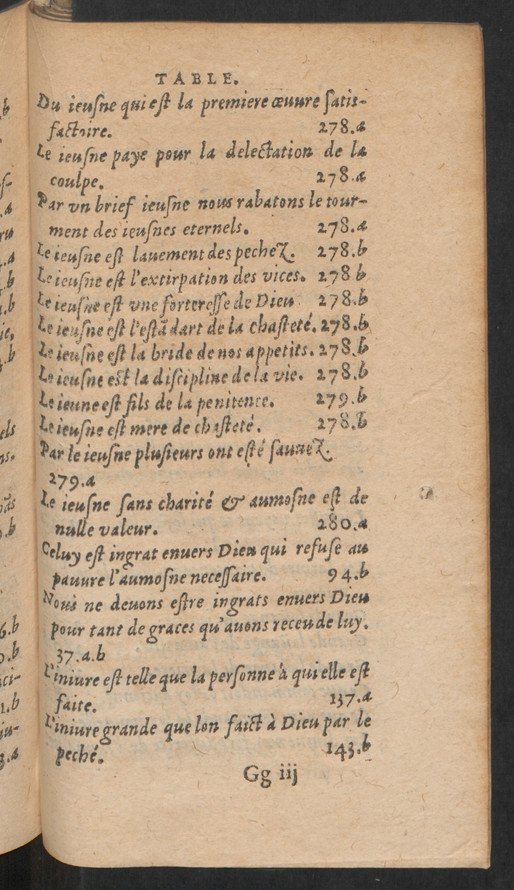 TABLE.
Du ieusne qui est la premiere œuure satis-
factoire. 278.a
Le ieusne paye pour la delectation de la
coulpe. 278.a
Par vn brief ieusne nous rabatons le tour-
ment des ieusnes eternels. 278.a
Le ieusne est lauement des pechez. 278.b
Le ieusne est l'extirpation des vices. 278 b
Le ieusne est vne forteresse de Dieu 278.b
Le ieusne est l'estãdart de la chasteté. 278.b
Le ieusne est la bride de nos appetits. 278.b
Le ieusne est la discipline de la vie. 278.b
Le ieune est fils de la penitence. 279.b
Le ieusne est mere de chasteté. 278.b
Par le ieusne plusieurs ont esté sauuez.
279.a
Le ieusne sans charité & aumosne est de
nulle valeur. 280.a
Celuy est ingrat enuers Dieu qui refuse au
pauure l'aumosne necessaire. 94.b
Nous ne deuons estre ingrats enuers Dieu
pour tant de graces qu'auons receu de luy.
37.a.b
L'iniure est telle que la personne à qui elle est
faite. 137.a
L'iniure grande que lon faict à Dieu par le
peché. 143.b
Gg iij